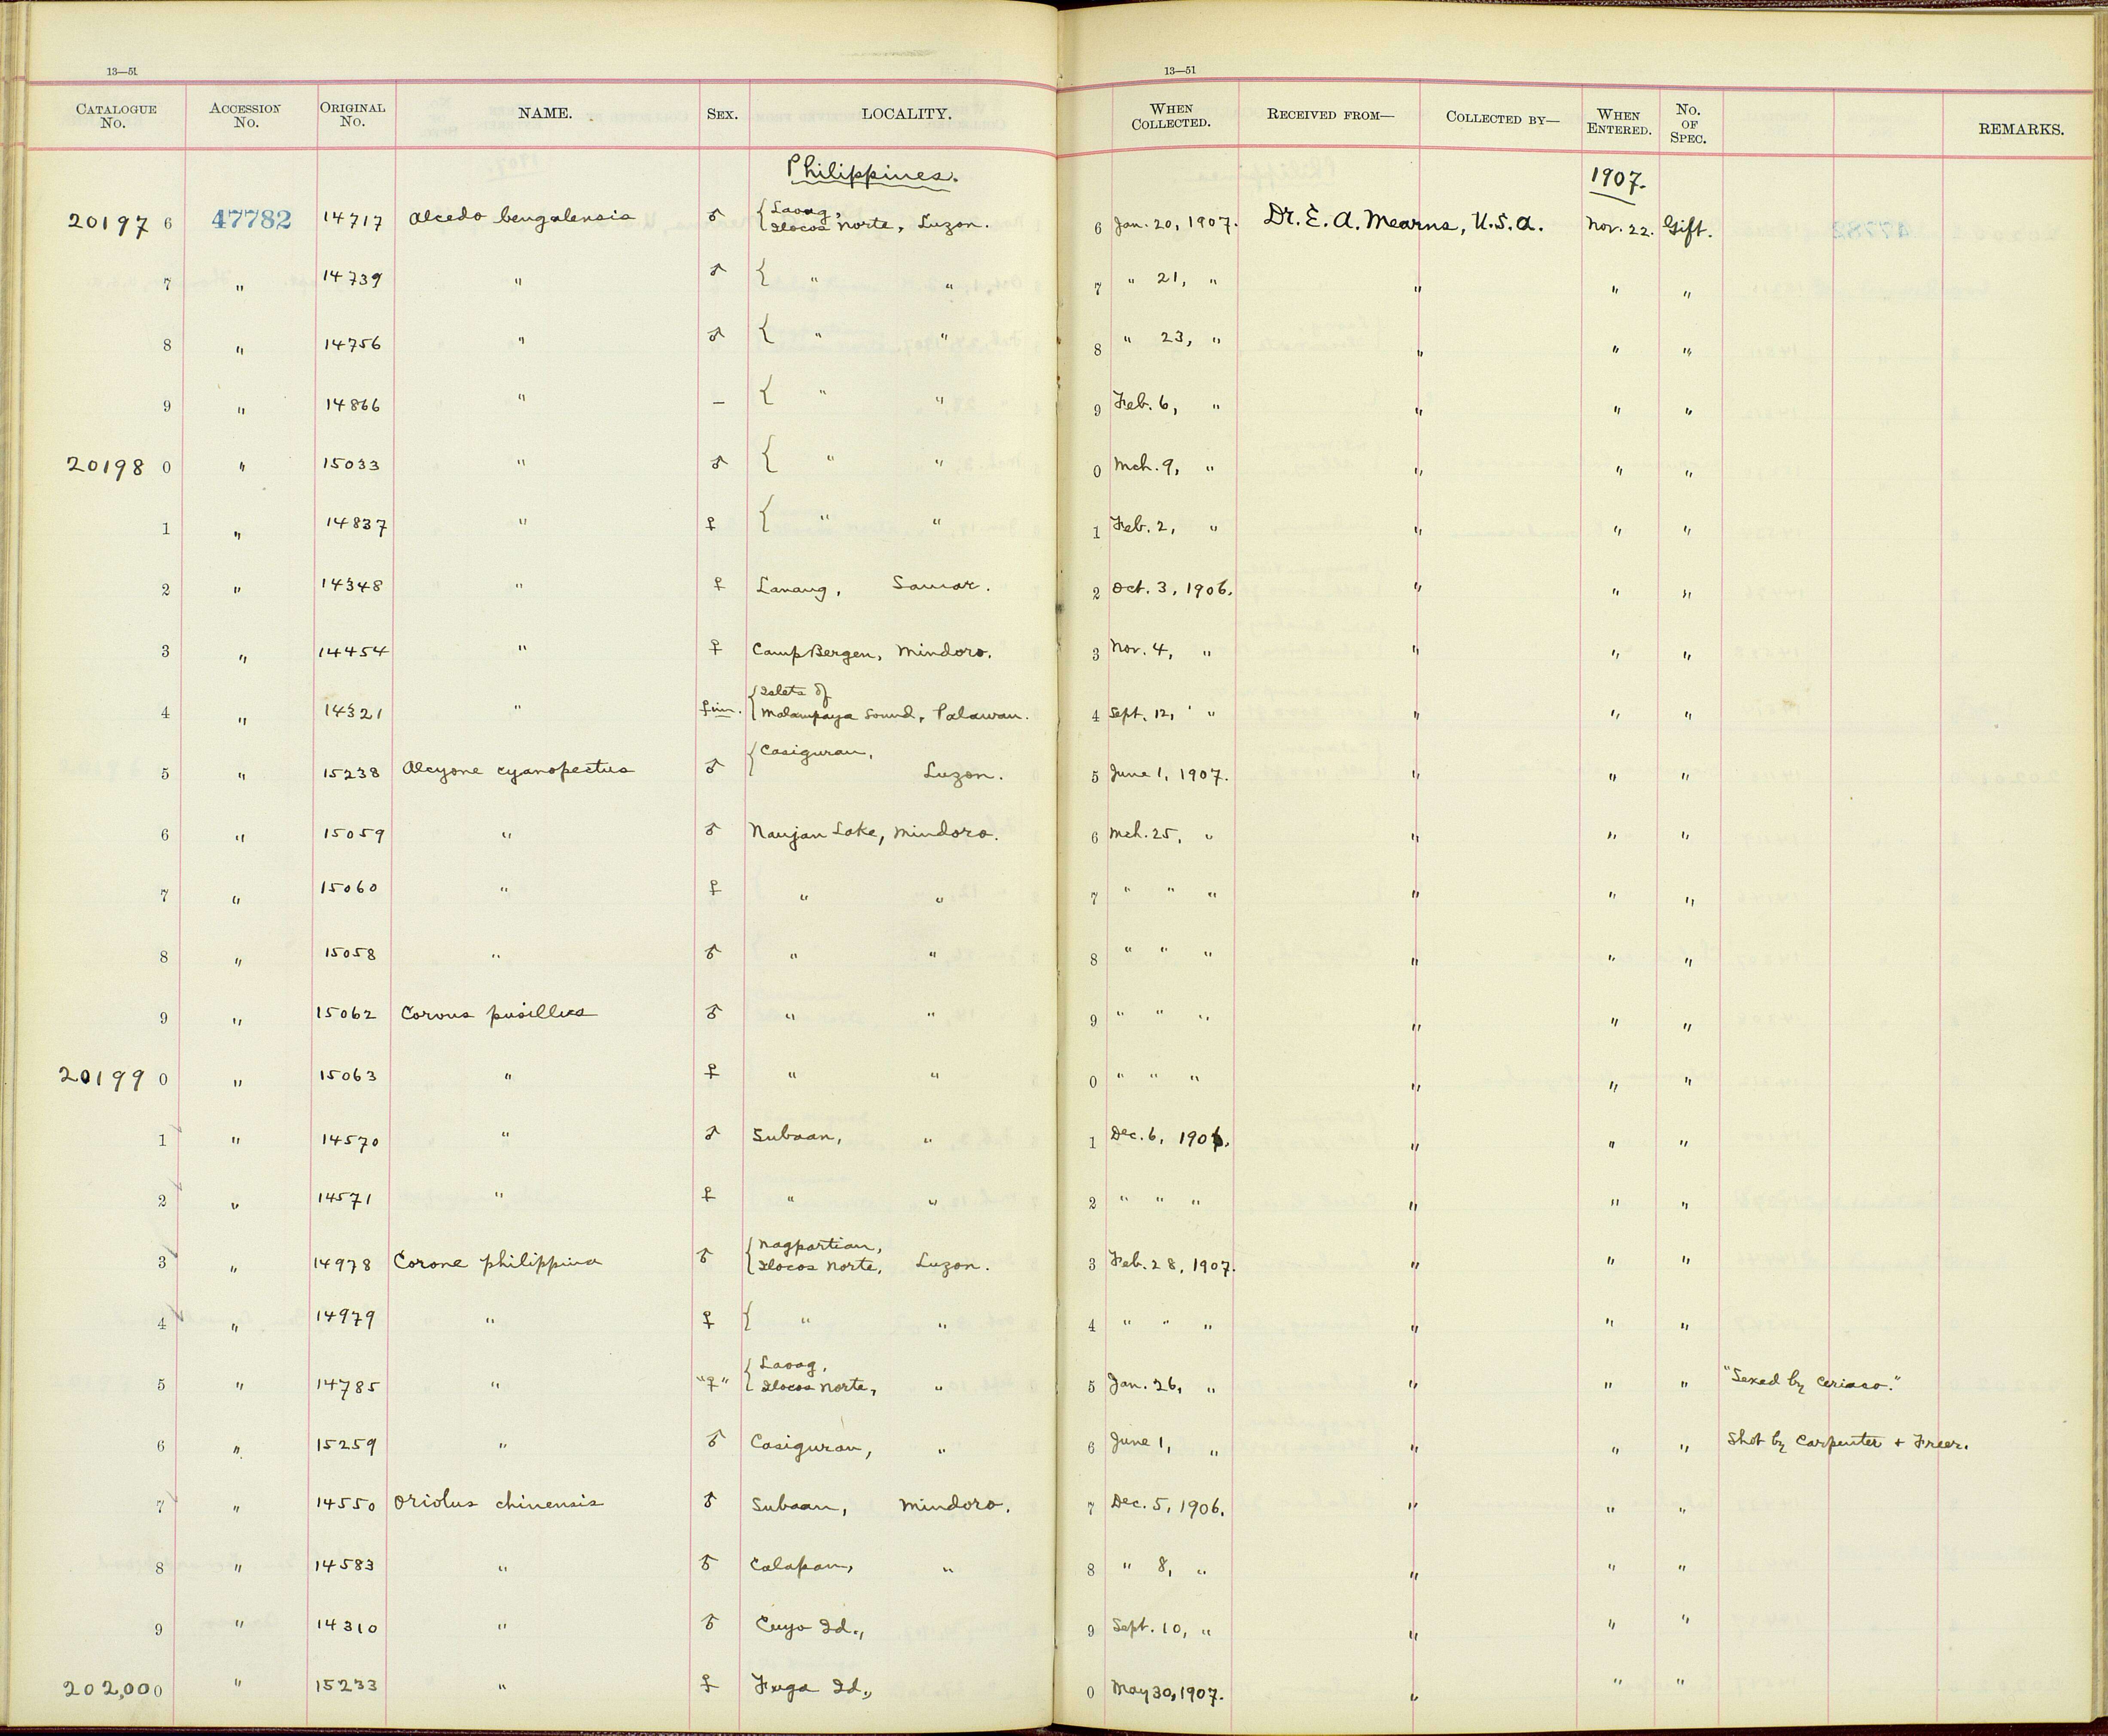 13—51 13—51
CATALOGUE No. ACCESSION No. ORIGINAL No. NAME. SEX. LOCALITY. WHEN COLLECTED. RECEIVED FROM— COLLECTED BY— WHEN ENTERED. No. OF SPEC. REMARKS.
Philippines. 1907.
20197 6 47782 14717 Alcedo bengalensis ♂ { Laoag, Ilocos Norte, Luzon. 6 Jan. 20, 1907. Dr. E. A. Mearns, U.S.A. Nov. 22. Gift.
7 " 14739 " ♂ { " " 7 " 21, " " " "
8 " 14756 " ♂ { " " 8 " 23, " " " "
9 " 14866 " – { " " 9 Feb. 6, " " " "
20198 0 " 15033 " ♂ { " " 0 Mch. 9, " " " "
1 " 14837 " ♀ { " " 1 Feb. 2, " " " "
2 " 14348 " ♀ Lanang, Samar. 2 Oct. 3, 1906. " " "
3 " 14454 " ♀ Camp Bergen, Mindoro. 3 Nov. 4, " " " "
4 " 14321 " ♀ im. { Islets of Malampaya Sound, Palawan. 4 Sept. 12, " " " "
5 " 15238 Alcyone cyanopectus ♂ { Casiguran, Luzon. 5 June 1, 1907. " " "
6 " 15059 " ♂ Naujan Lake, Mindoro. 6 Mch. 25, " " " "
7 " 15060 " ♀ " " 7 " " " " " "
8 " 15058 " ♂ " " 8 " " " " " "
9 " 15062 Corvus pusillus ♂ " " 9 " " " " " "
20199 0 " 15063 " ♀ " " 0 " " " " " "
1 " 14570 " ♂ Subaan, " 1 Dec. 6, 1906. " " "
2 " 14571 " ♀ " " 2 " " " " " "
3 " 14978 Corone philippina ♂ { Nagpartian, Ilocos Norte, Luzon. 3 Feb. 28, 1907. " " "
4 " 14979 " ♀ { " " 4 " " " " " "
5 " 14785 " "♀" { Laoag, Ilocos Norte, " 5 Jan. 26, " " " " "Sexed by Ceriaso."
6 " 15259 " ♂ Casiguran, " 6 June 1, " " " " Shot by Carpenter + Freer.
7 " 14550 Oriolus chinensis ♂ Subaan, Mindoro. 7 Dec. 5, 1906. " " "
8 " 14583 " ♂ Calapan, " 8 " 8, " " " "
9 " 14310 " ♂ Cuyo Id., 9 Sept. 10, " " " "
202,000 " 15233 " ♀ Fuga Id., 0 May 30, 1907. " " "